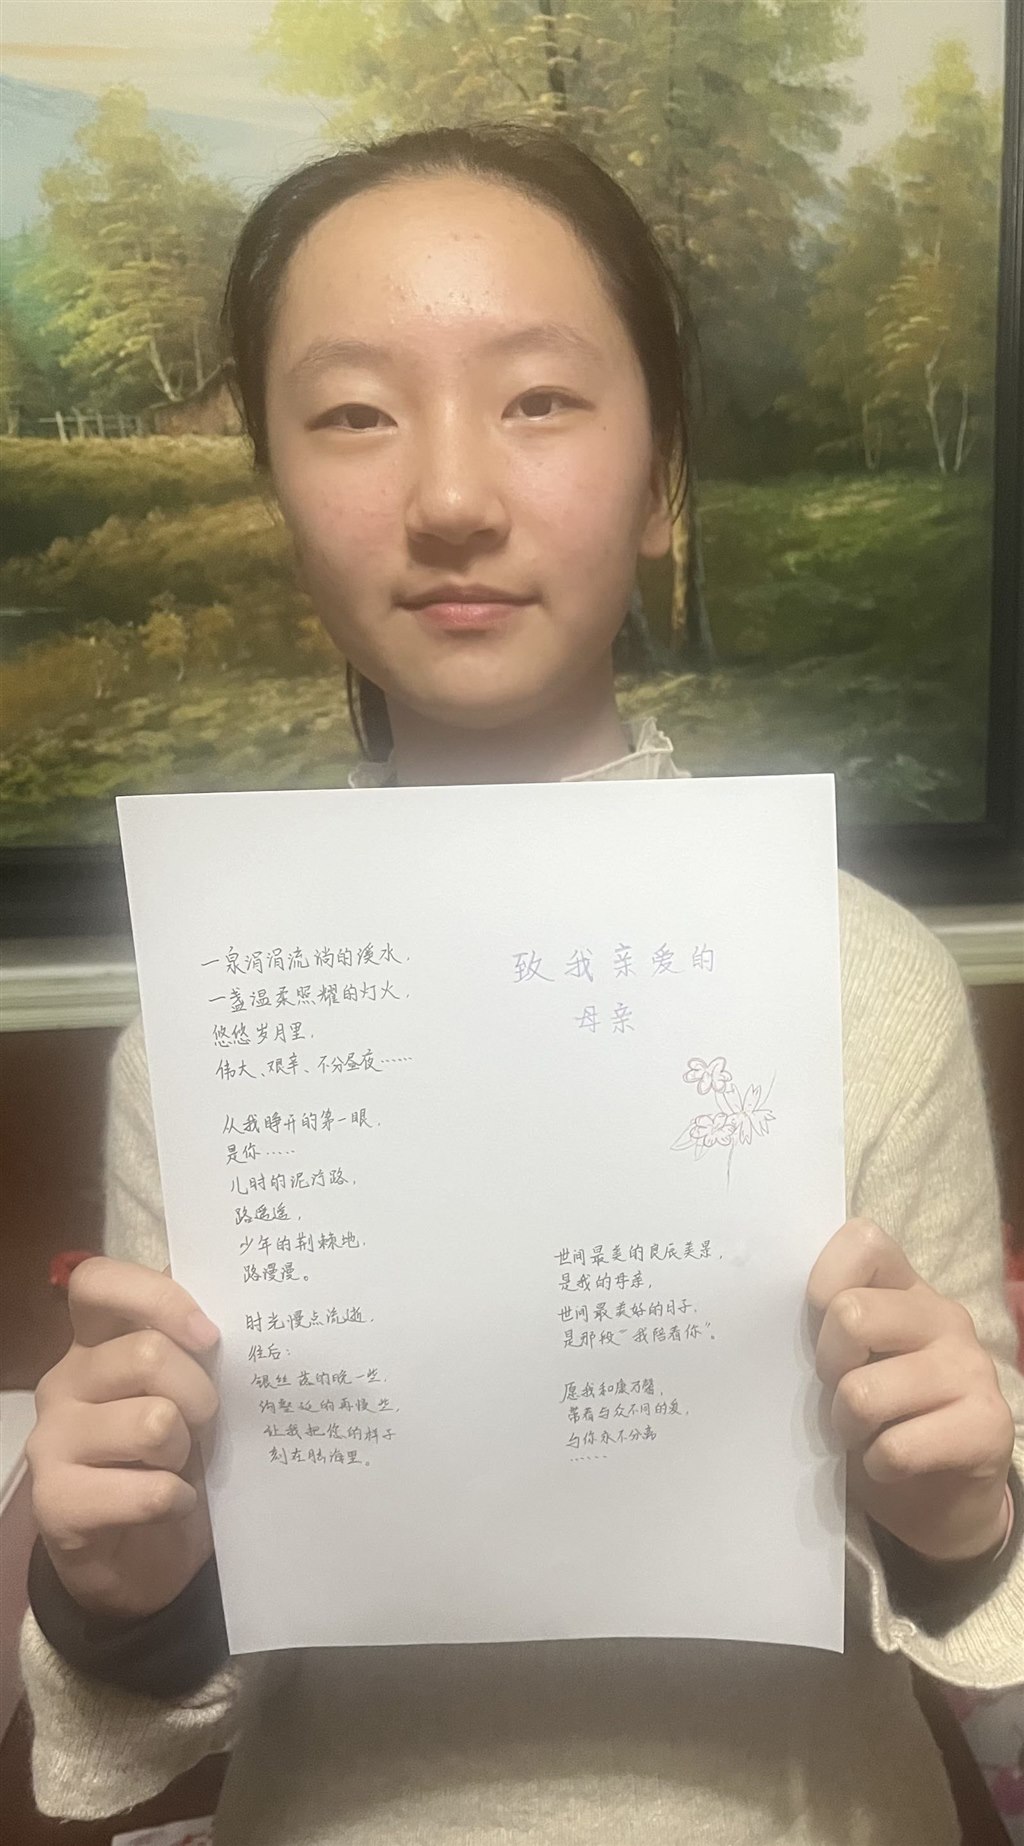 致我亲爱的
母亲
一泉涓涓流淌的溪水，
一盏温柔照耀的灯火，
悠悠岁月里，
伟大、艰辛、不分昼夜……
从我睁开的第一眼，
是你……
儿时的泥泞路，
路遥遥，
少年的荆棘地，
路漫漫。
时光慢点流逝，
往后：
银丝落的晚一些，
沟壑延的再慢些，
让我把您的样子
刻在脑海里。
世间最美的良辰美景，
是我的母亲，
世间最美好的日子，
是那段“我陪着你”。
愿我和康乃馨，
带着与众不同的爱，
与你永不分离
……